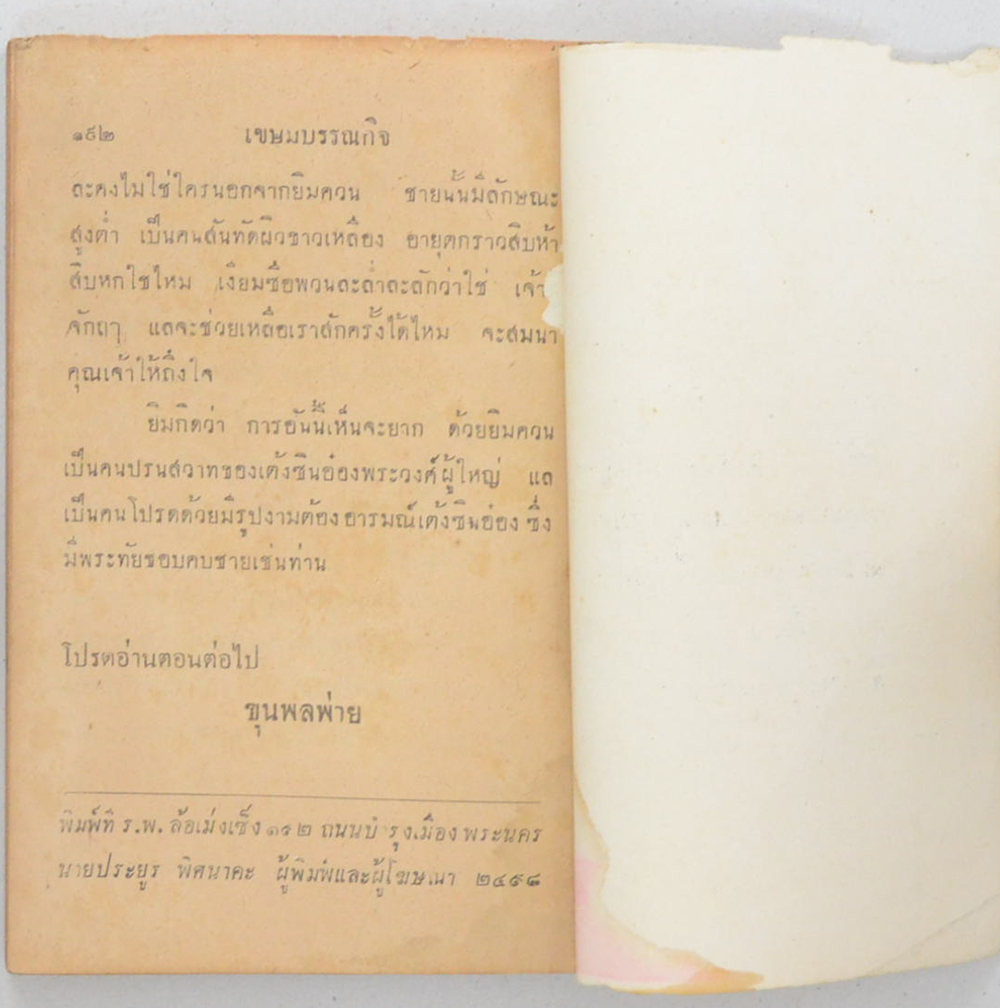 ๑๙๒ เขษมบรรณกิจ
ละคงไม่ใช่ใครนอกจากยิมควน ชายนั้นมีลักษณะ
สูงต่ำ เป็นคนสันทัดผิวขาวเหลือง อายุตกราวสิบห้า
สิบหกใช่ไหม เงียมซือพวนละล่ำละลักว่าใช่ เจ้า
จักฤๅ แลจะช่วยเหลือเราสักครั้งได้ไหม จะสมนา
คุณเจ้าให้ถึงใจ
ยิมกิดว่า การอันนี้เห็นจะยาก ด้วยยิมควน
เป็นคนปรนสวาทของเต้งซินอ๋องพระวงศ์ผู้ใหญ่ แล
เป็นคนโปรดด้วยมีรูปงามต้องอารมณ์เต้งซินอ๋อง ซึ่ง
มีพระทัยชอบคบชายเช่นท่าน
โปรดอ่านตอนต่อไป
ขุนพลพ่าย
พิมพ์ที่ ร.พ. ล้อเม่งเซ็ง ๓๕๒ ถนนบำรุงเมือง พระนคร
นายประยูร พิศนาคะ ผู้พิมพ์และผู้โฆษณา ๒๔๙๘